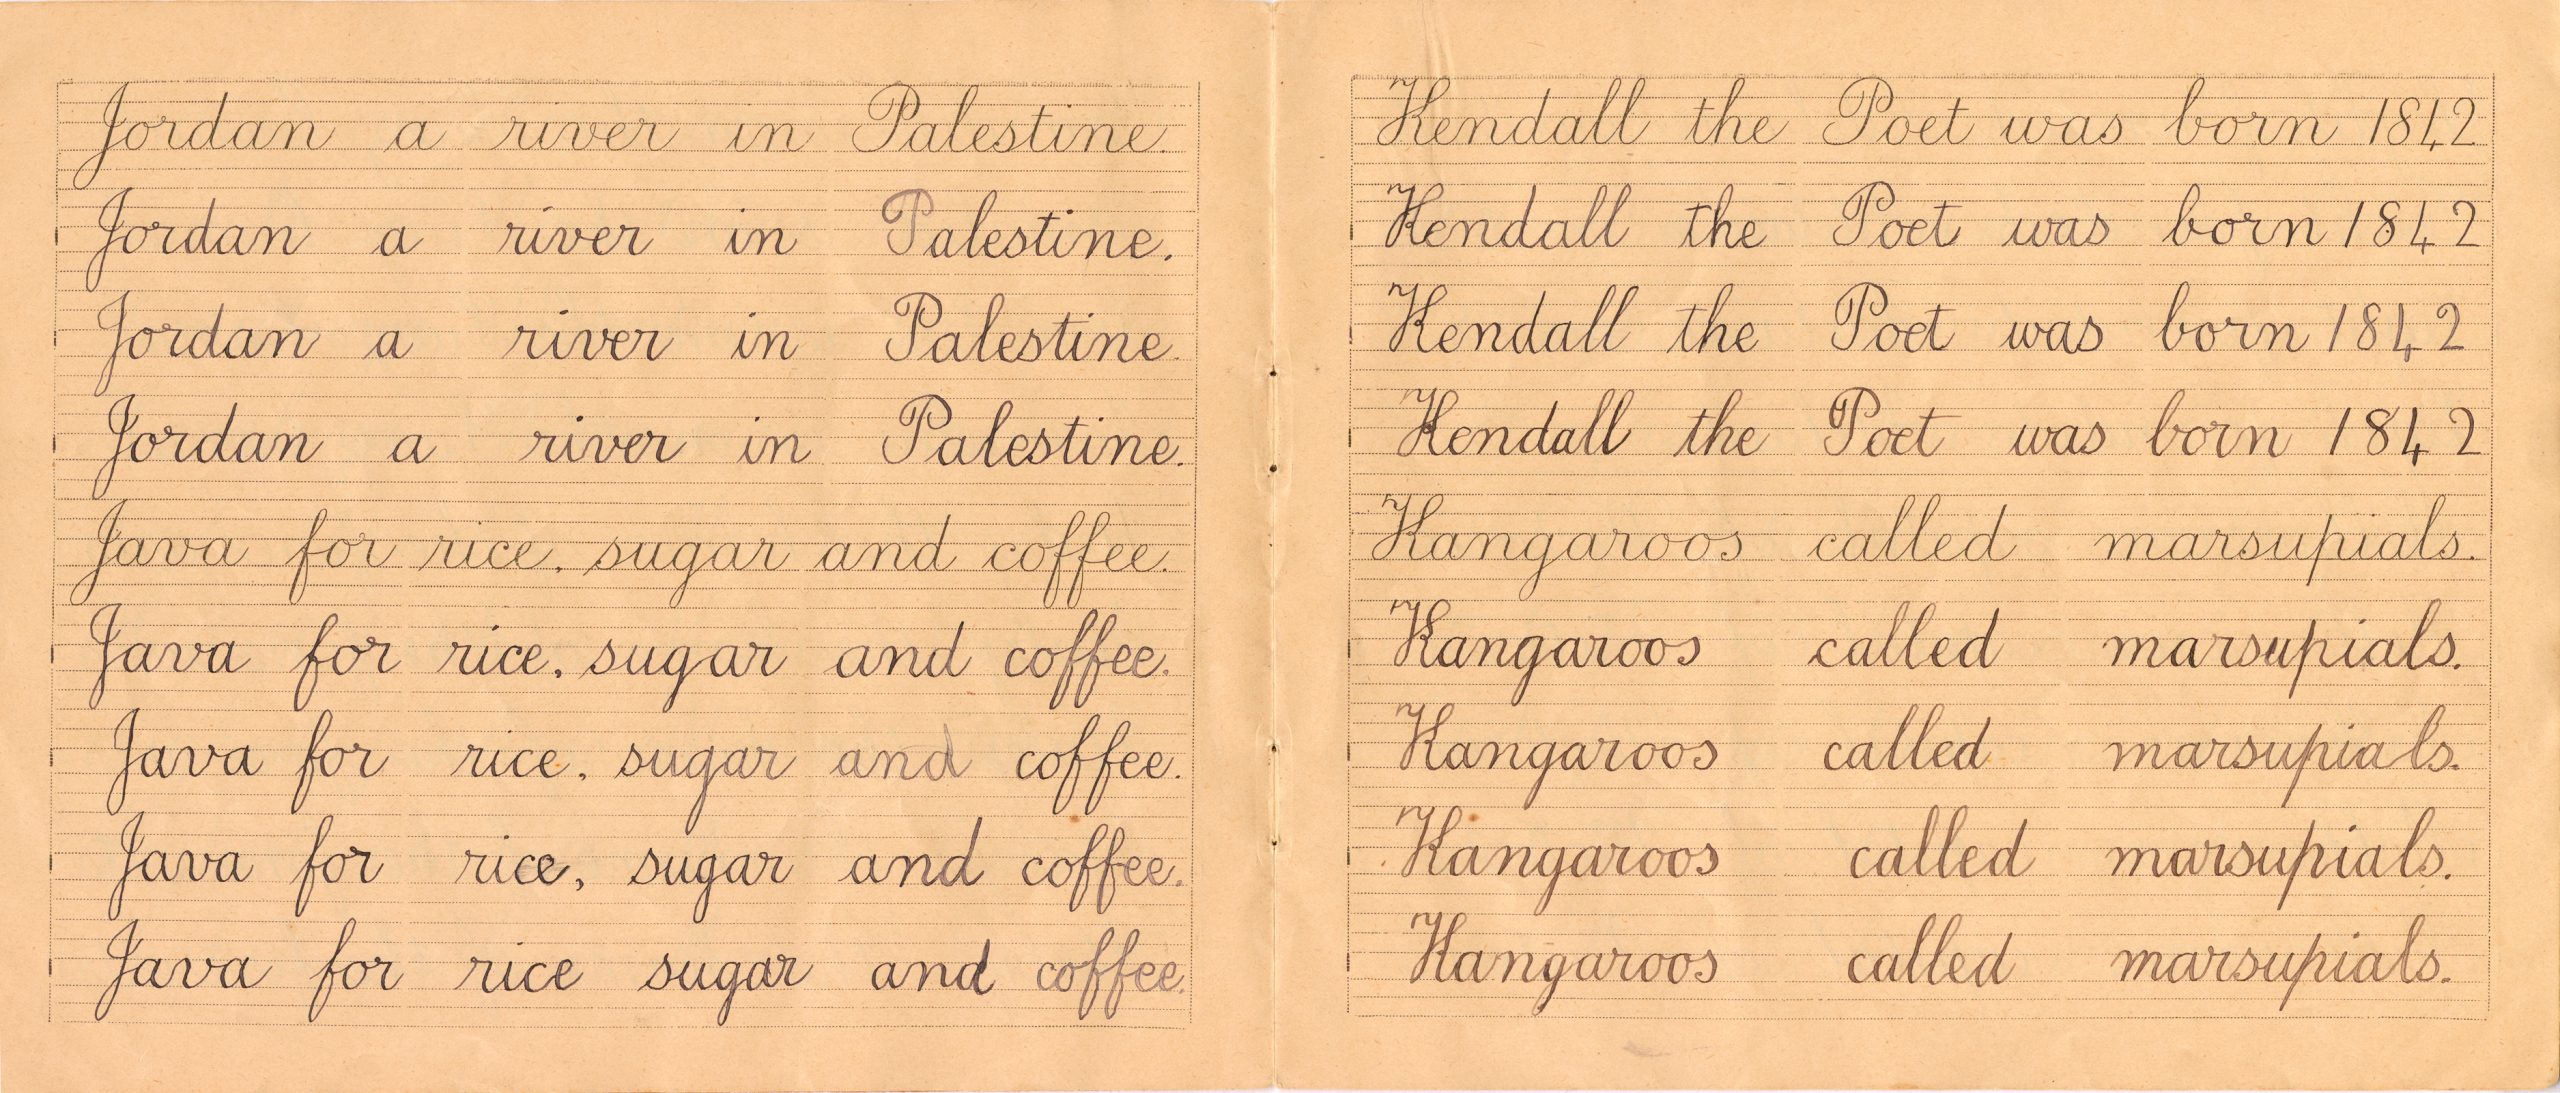 Jordan a river in Palestine.
Jordan a river in Palestine.
Jordan a river in Palestine.
Jordan a river in Palestine.
Java for rice, sugar and coffee.
Java for rice, sugar and coffee.
Java for rice, sugar and coffee.
Java for rice, sugar and coffee.
Java for rice sugar and coffee.
Kendall the Poet was born 1842
Kendall the Poet was born 1842
Kendall the Poet was born 1842
Kendall the Poet was born 1842
Kangaroos called marsupials.
Kangaroos called marsupials.
Kangaroos called marsupials.
Kangaroos called marsupials.
Kangaroos called marsupials.